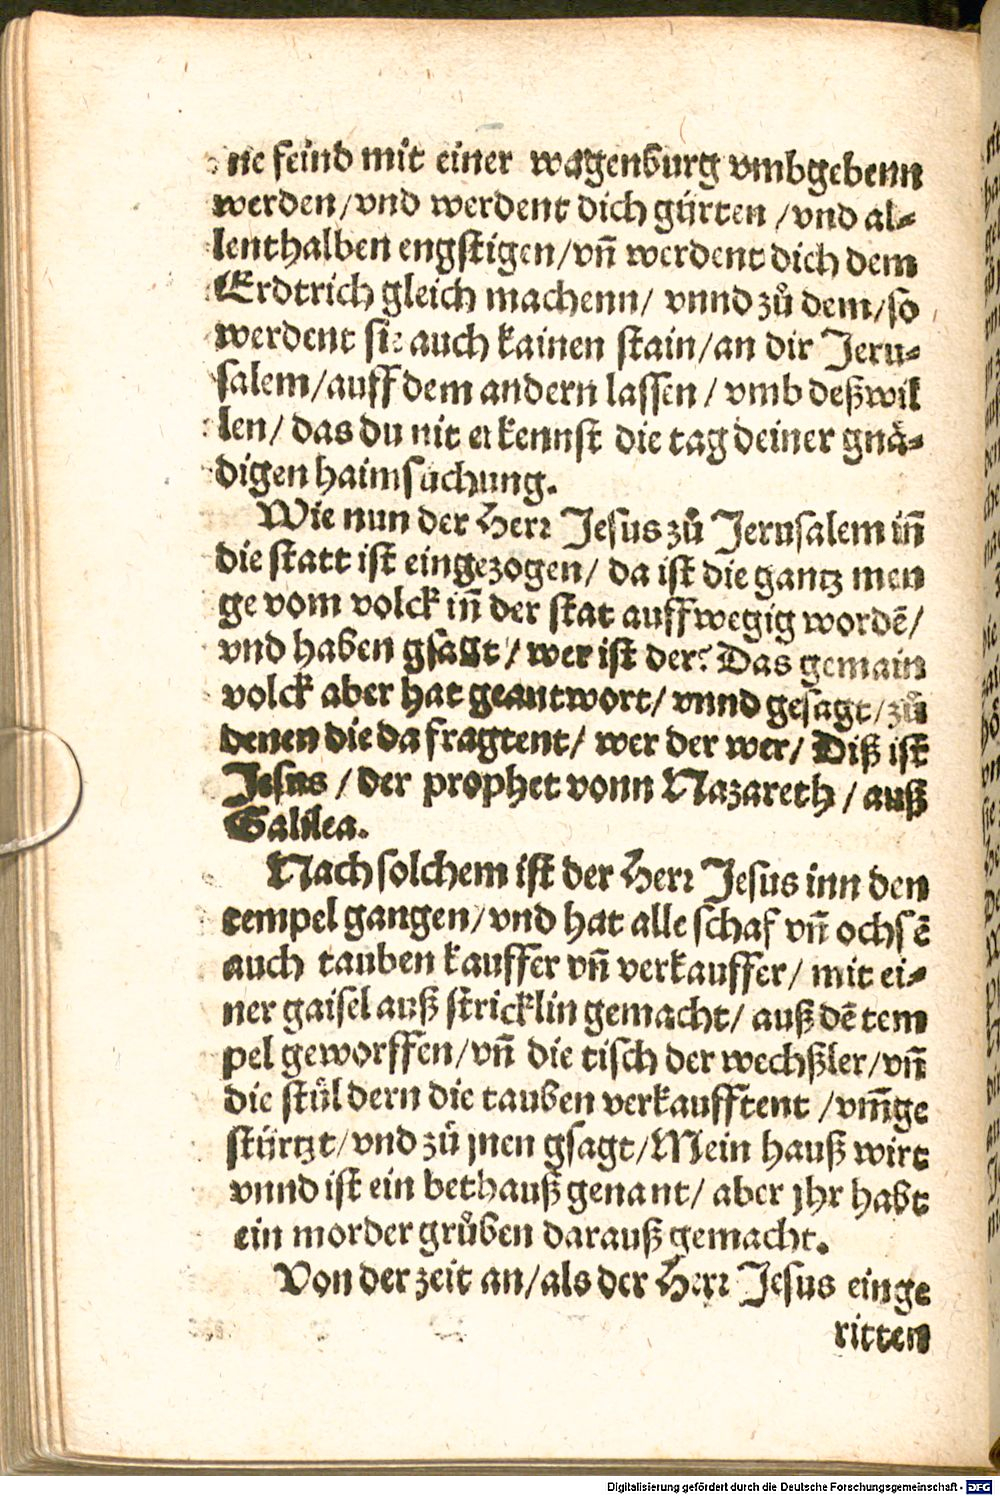 ne feind mit einer wagenburg vmbgebenn
werden/vnd werdent dich gürten /vnd al-
lenthalben engstigen/vn̄ werdent dich dem
Erdtrich gleich machenn/ vnnd zů dem/so
werdent sie auch kainen stain/an dir Jeru-
salem/auff dem andern lassen / vmb deßwil
len/ das du nit erkennst die tag deiner gnä-
digen haimsuchung.
Wie nun der Herr Jesus zů Jerusalem in̄
die statt ist eingezogen/ da ist die gantz men
ge vom volck in̄ der stat auffwegig wordē/
vnd haben gsagt / wer ist der? Das gemain
volck aber hat geantwort/ vnnd gesagt/zů
denen die da fragtent/ wer der wer/ Diß ist
Jesus / der prophet vonn Nazareth / auß
Galilea.
Nach solchem ist der Herr Jesus inn den
tempel gangen/vnd hat alle schaf vn̄ ochsē
auch tauben kauffer vn̄ verkauffer/ mit ei-
ner gaisel auß stricklin gemacht/ auß dē tem
pel geworffen/vn̄ die tisch der wechßler/vn̄
die stül dern die tauben verkaufftent /vm̄ge
stürtzt/vnd zů jnen gsagt/Mein hauß wirt
vnnd ist ein bethauß genant/ aber jhr habt
ein morder grůben darauß gemacht.
Von der zeit an/als der Herr Jesus einge
ritten
Digitalisierung gefördert durch die Deutsche Forschungsgemeinschaft - DFG